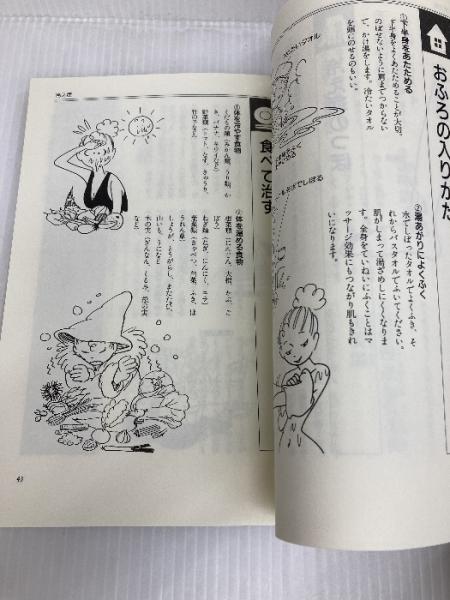 おふろの入りかた
①下半身をあたためる
下半身をよくあたためることが大切。
のぼせないように肩までつからない
で、かけ湯をします。冷たいタオル
を頭にのせるのもいい。
タオル
②湯あがりによくふく
水でしぼったタオルでよくふき、そ
れからバスタオルでふいてください。
肌がしまって湯ざめしにくくなりま
す。全身をていねいにふくことはマ
ッサージ効果にもつながり肌もきれ
いになります。
食べて治す
①体を冷やす食物
くだもの類(みかん類、うり類、か
き、バナナ、キウイなど)
野菜類(トマト、なす、きゅうり、
竹の子など)
②体を温める食物
根菜類(にんじん、大根、かぶ、ご
ぼう)
ねぎ類(ねぎ、にんにく、ニラ)
葉菜類(キャベツ、白菜、ふき、ほ
うれん草)
しょうが、とうがらし、またたび、
山いも、うになど
木の実(ぎんなん、くるみ、松の実
など)
43